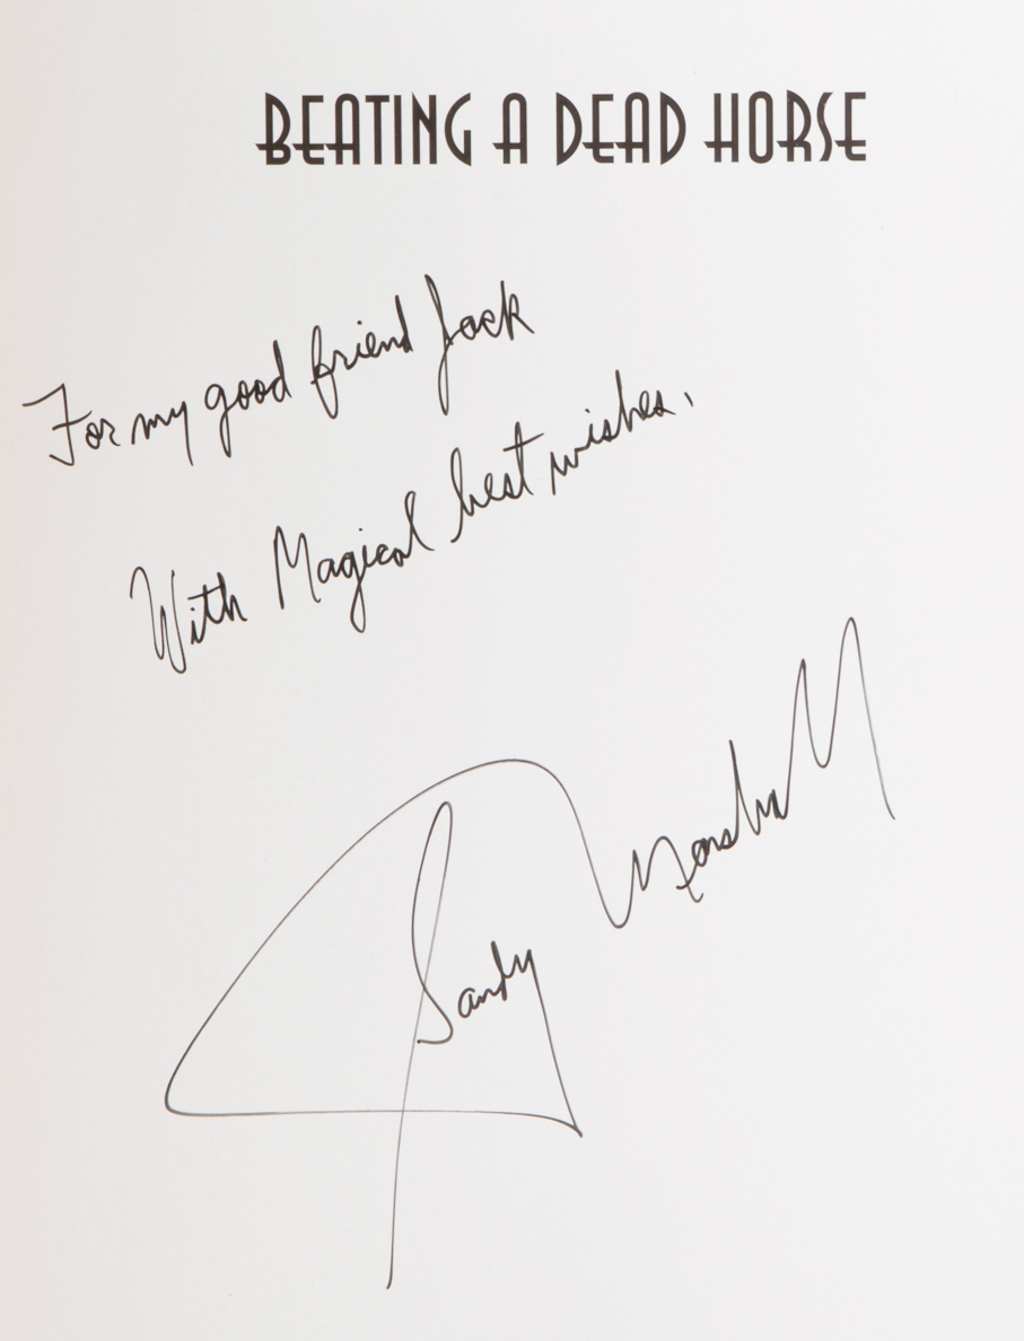 BEATING A DEAD HORSE
For my good friend Jack
With Magical best wishes.
Sandy Marshall